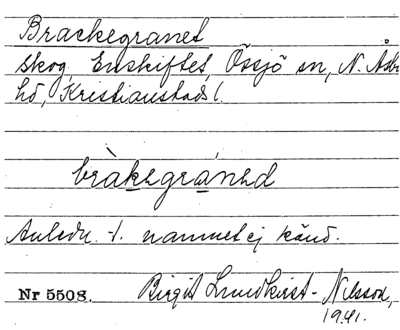 Brackegranet
skog, Enskiftet, Össjö sn, N. Åsbo
hd, Kristianstads l.
bràkegráned
Anledn. t. namnet ej känd.
Nr 5508. Birgit Lundkvist-Nilsson,
1941.